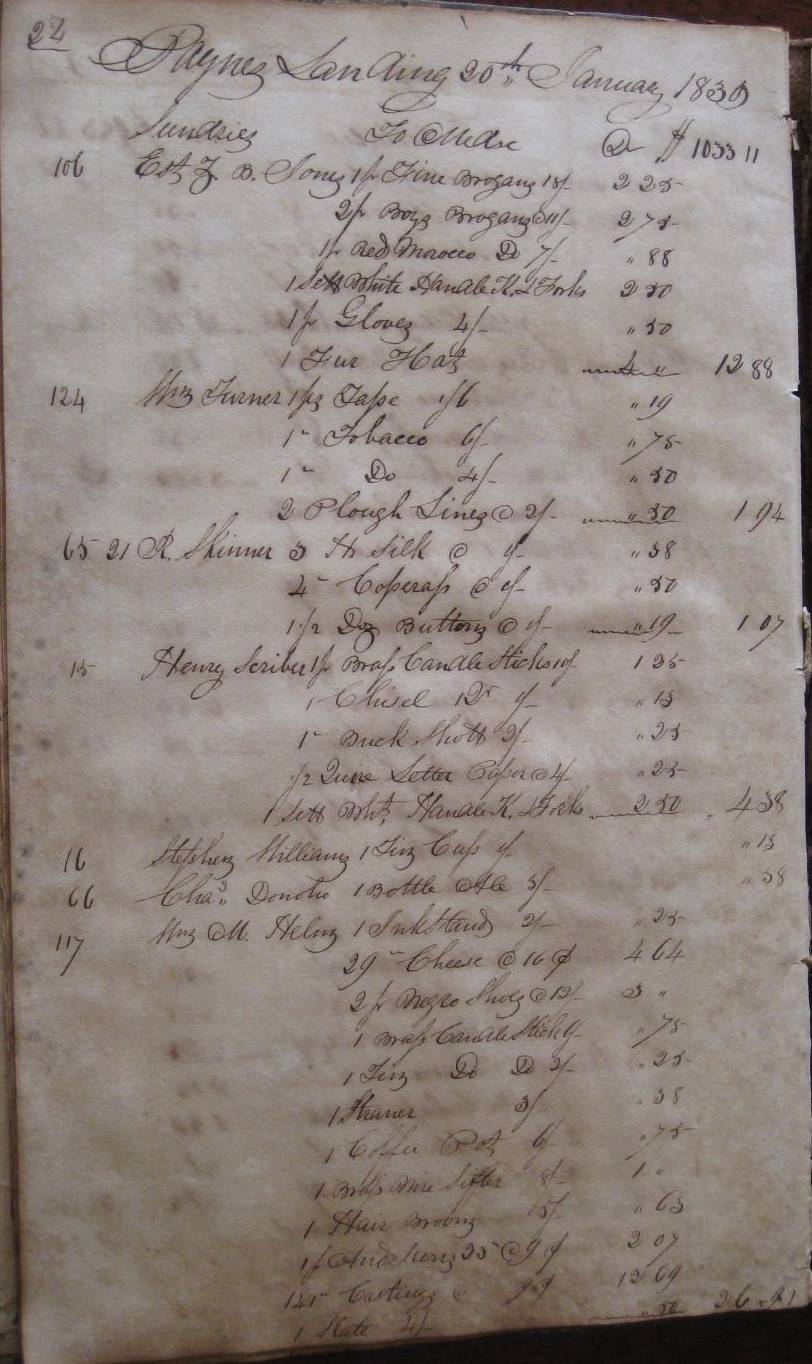 24
Paynes Landing 20th January 1835
Sundries To Mdse Dr $ 1033 11
106 Est J. B. Jones 1 pr Fine Brogans 18/- 2 25
2 pr Boys Brogans @ 11/- 2 75
1 pr Red Morocco Do 7/- " 88
1 Sett White Handle K. & Forks 2 50
1 pr Gloves 4/- " 50
1 Fur Hat 4 " 12 88
124 Mrs Turner 1 ps Tape 1/6 " 19
1 " Tobacco 6/- " 75
1 " Do 4/- " 50
2 Plough Lines @ 2/- " 50 1 94
65 21 R. Skinner 3 Hs Silk @ 1/- " 38
4 " Coperass @ 1/- " 50
1 1/2 Doz Buttons @ 1/- " 19 1 07
15 Henry Scriber 1 pr Brass Candle Sticks 10/- 1 25
1 Chisel 1/- " 13
1 " Buck Shott 2/- " 25
1/2 Quire Letter Paper @ 4/- " 25
1 Sett Wht Handle K. & Forks 2 50 4 38
16 Stephen Williams 1 Tin Cup 1/- " 13
66 Chas Donoho 1 Bottle Ale 3/- " 38
117 Mrs M. Helm 1 Ink Stand 2/- " 25
29 " Cheese @ 16 ¢ 4 64
2 pr Negro Shoes @ 12/- 3 "
1 Brass Candle Stick 6/- " 75
1 Tin Do Do 2/- " 25
1 Straner 3/- " 38
1 Coffee Pot 6/- " 75
1 Brass Wire Sifter 8/- 1 "
1 Hair Broom 5/- " 63
1 pr Andherns 23 " @ 9 ¢ 2 07
141 " Castings @ 9 ¢ 12 69
1 Slate 4/- " 50 26 91